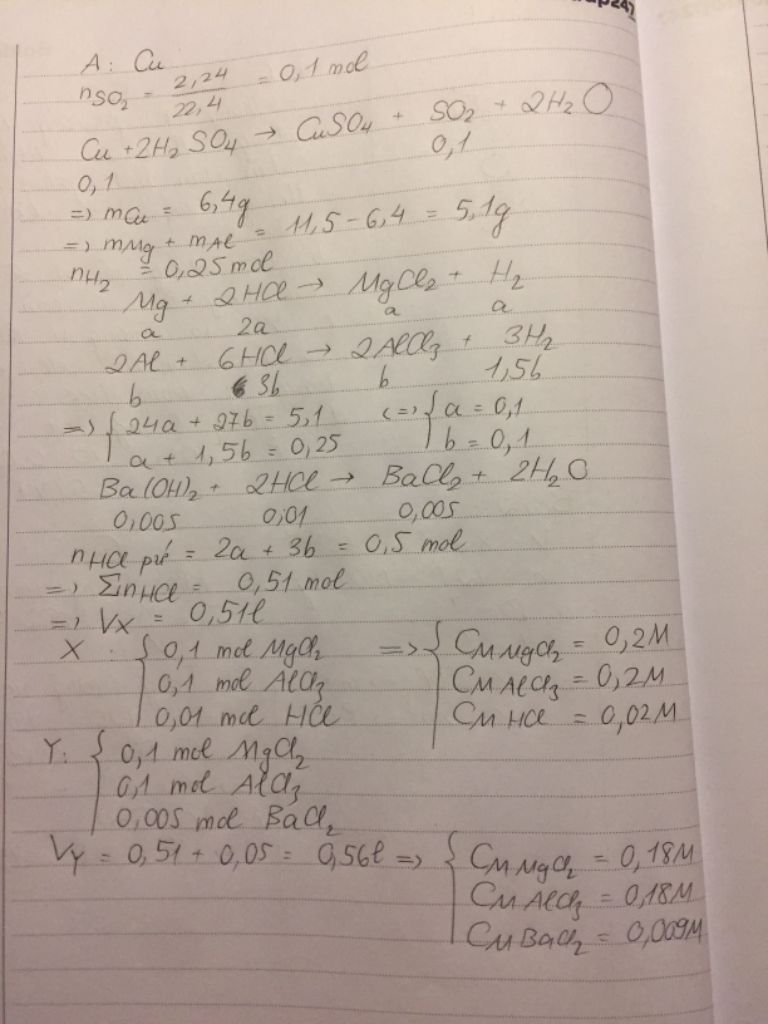 A: Cu
nSO2 = 2,24/22,4 = 0,1 mol
Cu + 2H2SO4 → CuSO4 + SO2 + 2H2O
0,1 0,1
=> mCu = 6,4g
=> mMg + mAl = 11,5 - 6,4 = 5,1g
nH2 = 0,25 mol
Mg + 2HCl → MgCl2 + H2
a 2a a a
2Al + 6HCl → 2AlCl3 + 3H2
b 3b b 1,5b
=> { 24a + 27b = 5,1 <=> { a = 0,1
a + 1,5b = 0,25 b = 0,1
Ba(OH)2 + 2HCl → BaCl2 + 2H2O
0,005 0,01 0,005
nHCl pứ = 2a + 3b = 0,5 mol
=> ΣnHCl = 0,51 mol
=> VX = 0,51l
X : { 0,1 mol MgCl2 => { CM MgCl2 = 0,2M
0,1 mol AlCl3 CM AlCl3 = 0,2M
0,01 mol HCl CM HCl = 0,02M
Y: { 0,1 mol MgCl2
0,1 mol AlCl3
0,005 mol BaCl2
VY = 0,51 + 0,05 = 0,56l => { CM MgCl2 = 0,18M
CM AlCl3 = 0,18M
CM BaCl2 = 0,009M